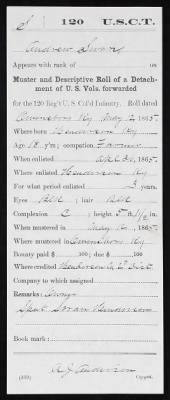 S | 120 | U.S.C.T.
Andrew
Appears with rank of on
Muster and Descriptive Roll of a Detach-
ment of U. S. Vols. forwarded
for the 120 Reg't U. S. Col'd Infantry. Roll dated
Owensboro Ky May 12, 1865.
Where born Henderson Ky
Age 18 y'rs; occupation Farmer
When enlisted Apl 20, 1865.
Where enlisted Henderson Ky
For what period enlisted 3 years.
Eyes Blk; hair Blk
Complexion C; height 5 ft. 1½ in.
When mustered in May 12, 1865.
Where mustered in Owensboro Ky
Bounty paid $ 100; due $ 100
Where credited Henderson Co 2 Dist.
Company to which assigned
Remarks:
Henderson
Book mark:
Anderson
(339) Copyist.